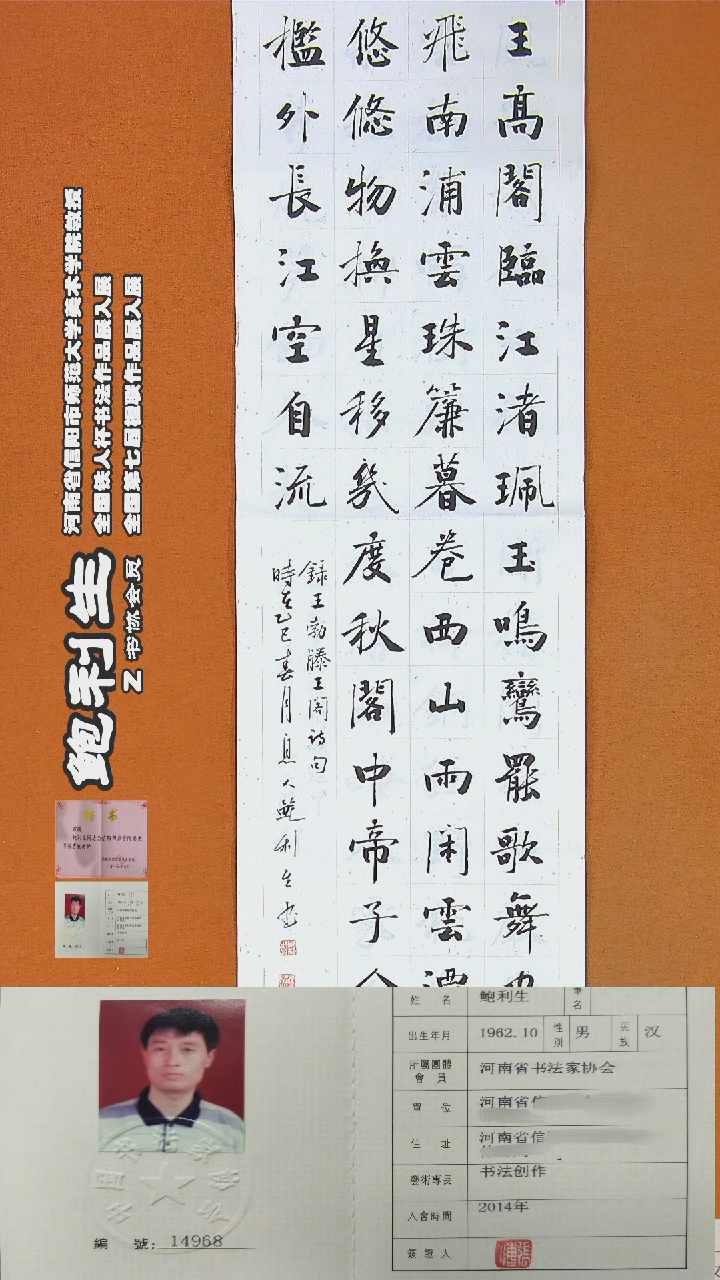 王高閣臨江渚珮玉鳴鸞罷歌舞
飛南浦雲珠簾暮卷西山雨閑雲潭
悠悠物換星移幾度秋閣中帝子今
檻外長江空自流
録王勃滕王閣詩句
時在乙巳春月息人鲍利生书
河南省信阳市师范大学美术学院教授
全国铁人杯书法作品展入展
全国第七届楹联作品展入展
鲍利生
Z书协会员
聘书
編 號：14968
姓 名 鲍利生 筆名
出生年月 1962.10 性别 男 民族 汉
所屬團體會員 河南省书法家协会
單位 河南省信
住址 河南省信
藝術專長 书法创作
入會時間 2014年
簽證人